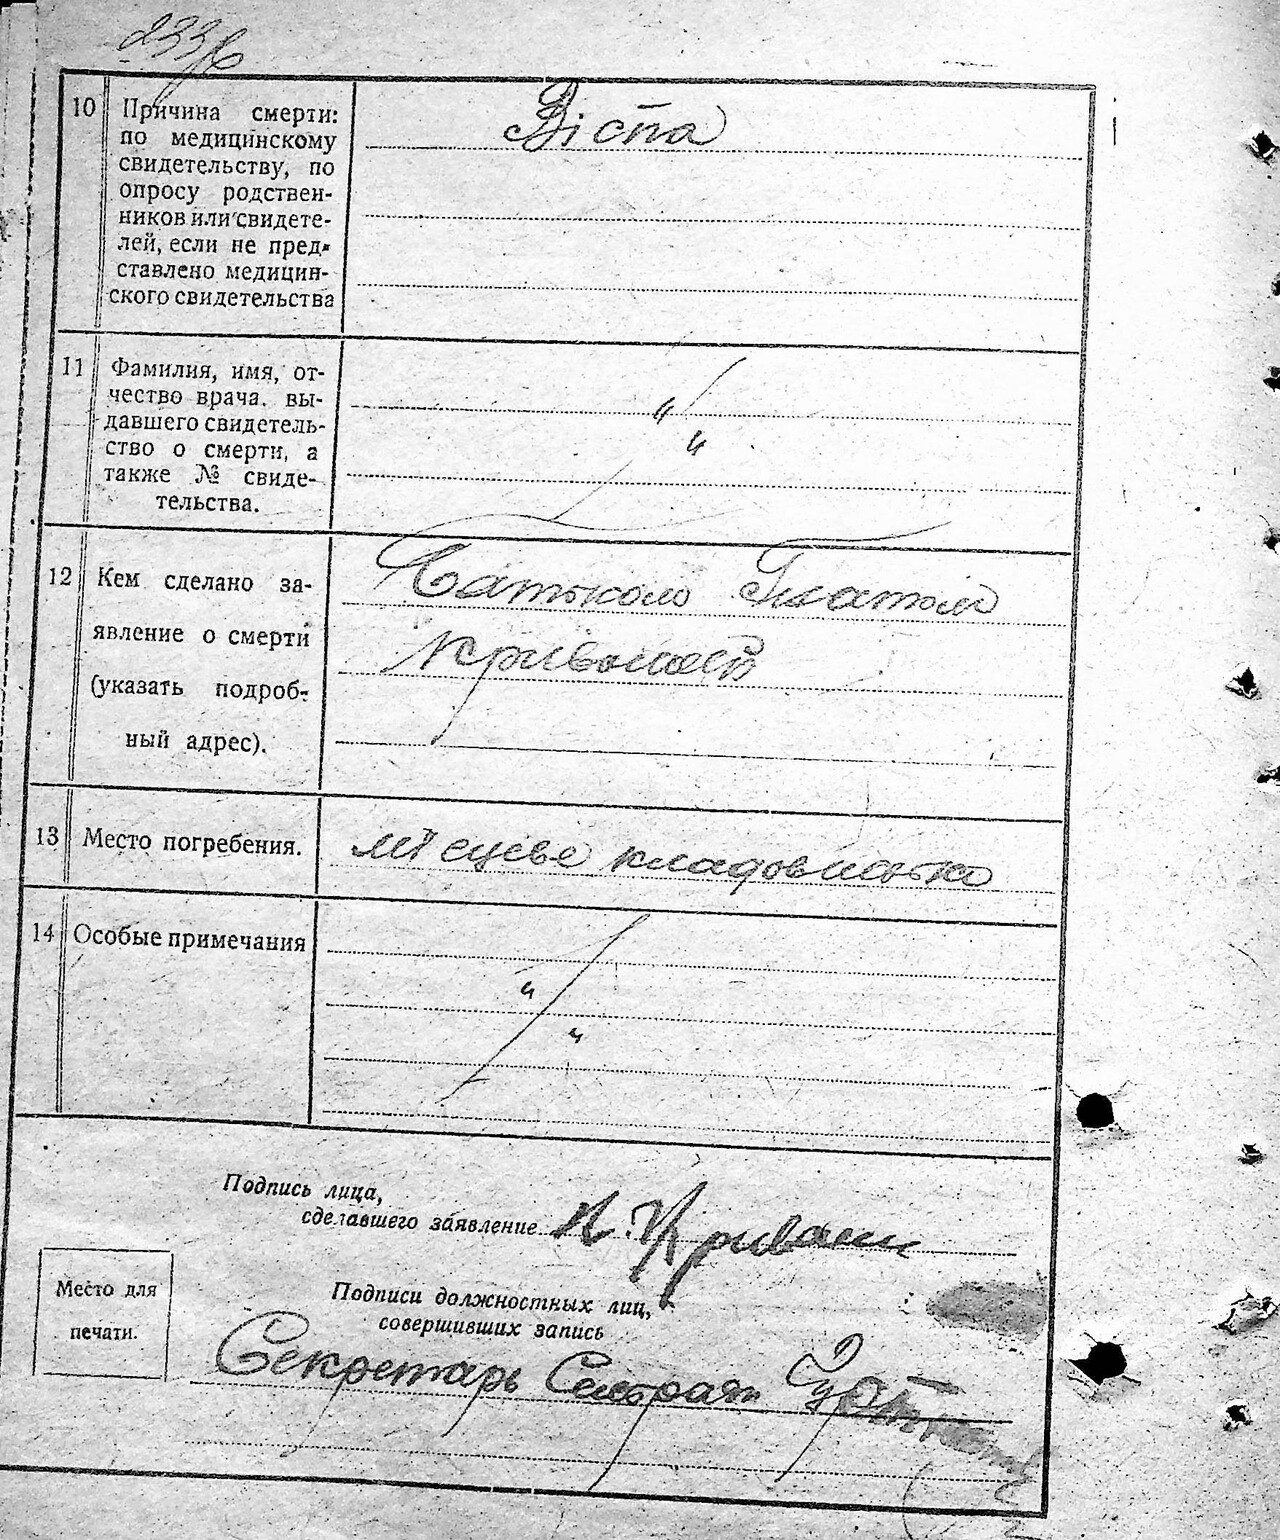 10 Причина смерти:
по медицинскому
свидетельству, по
опросу родствен-
ников или свидете-
лей, если не пред-
ставлено медицин-
ского свидетельства
Віспа
11 Фамилия, имя, от-
чество врача, вы-
давшего свидетель-
ство о смерти, а
также № свиде-
тельства.
12 Кем сделано за-
явление о смерти
(указать подроб-
ный адрес).
Батьком
13 Место погребения.
місцеве кладовисько
14 Особые примечания
Подпись лица,
сделавшего заявление
Подписи должностных лиц,
совершивших запись
Место для
печати.
Секретарь Сельради